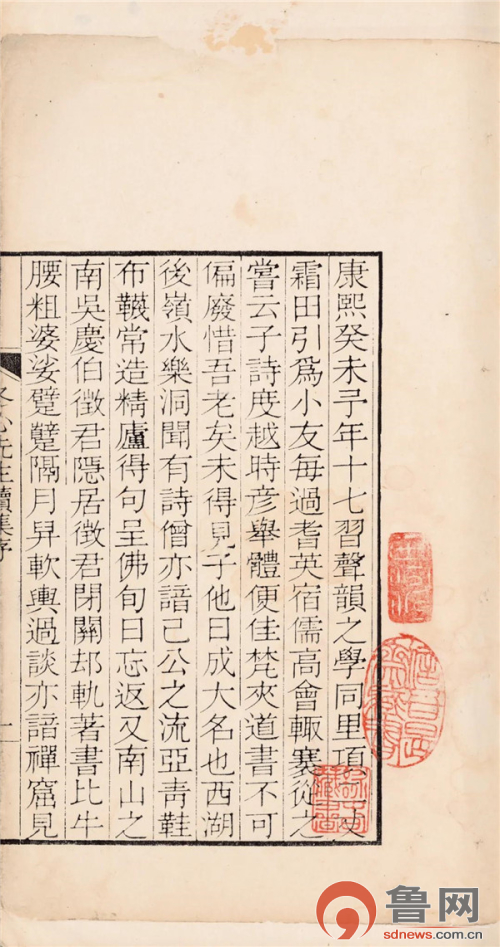 康熙癸未予年十七習聲韻之學同里項丈
霜田引爲小友每過耆英宿儒高會輒褰從之
嘗云子詩度越時彦舉體便佳梵夾道書不可
偏廢惜吾老矣未得見子他日成大名也西湖
後嶺水樂洞聞有詩僧亦諳己公之流亞靑鞋
布韈常造精廬得句呈佛旬日忘返又南山之
南吳慶伯徵君隱居徵君閉關却軌著書比牛
腰粗婆娑躄躠隔月舁軟輿過談亦諳禪窟見
冬心先生續集序
一
鲁网
sdnews.com.cn